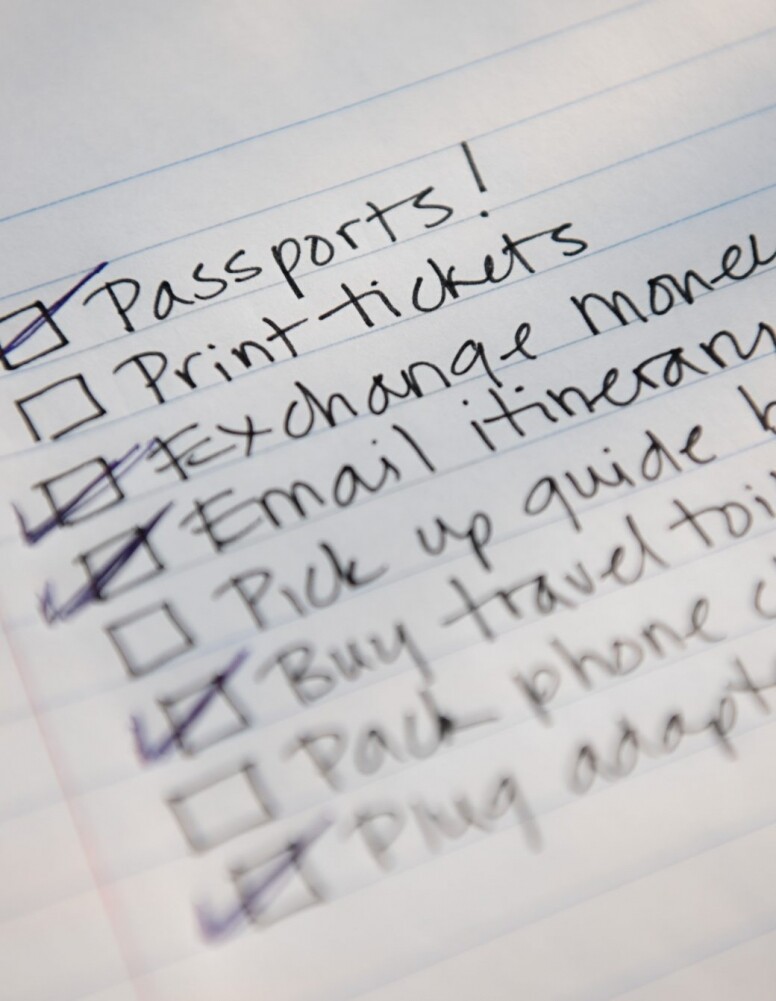 Passports!
Print tickets
Exchange money
Email itinerary
Pick up guide b
Buy travel toi
Pack phone c
Plug adapt